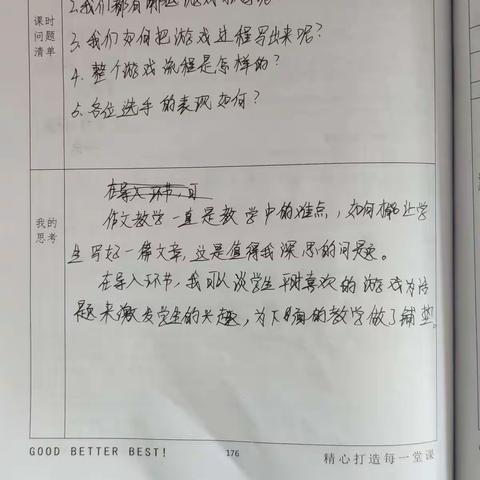 课时
问题
清单
2.我们都有哪些游戏
3.我们如何把游戏过程写出来呢?
4.整个游戏流程是怎样的?
5.各位选手的表现如何?
我的
思考
在导入环节,可
作文教学一直是教学中的难点,如何让学
生写好一篇文章,这是值得我深思的问题。
在导入环节,我可以谈学生平时喜欢的游戏为话
题来激发学生的兴趣,为下面的教学做了铺垫。
GOOD BETTER BEST!
176
精心打造每一堂课